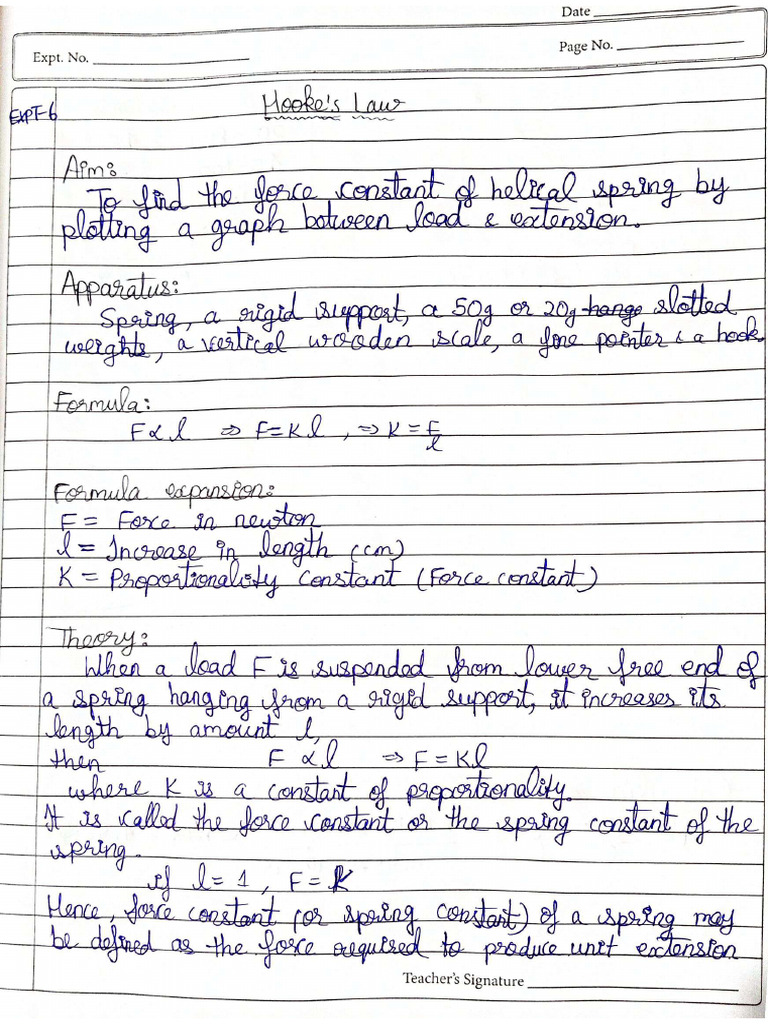 Date
Expt. No.
Page No.
EXPT-6
Hooke's Law
Aim:
To find the force constant of helical spring by
plotting a graph between load & extension.
Apparatus:
Spring, a rigid support, a 50g or 20g hange slotted
weights, a vertical wooden scale, a fine pointer & a hook.
Formula:
F ∝ l ⇒ F = Kl , ⇒ K = F/l
Formula expansion:
F = Force in newton
l = Increase in length (cm)
K = Proportionality constant (Force constant)
Theory:
When a load F is suspended from lower free end of
a spring hanging from a rigid support, it increases its
length by amount l,
then F ∝ l ⇒ F = Kl
where K is a constant of proportionality.
It is called the force constant or the spring constant of the
spring.
if l = 1 , F = K
Hence, force constant (or spring constant) of a spring may
be defined as the force required to produce unit extension
Teacher's Signature